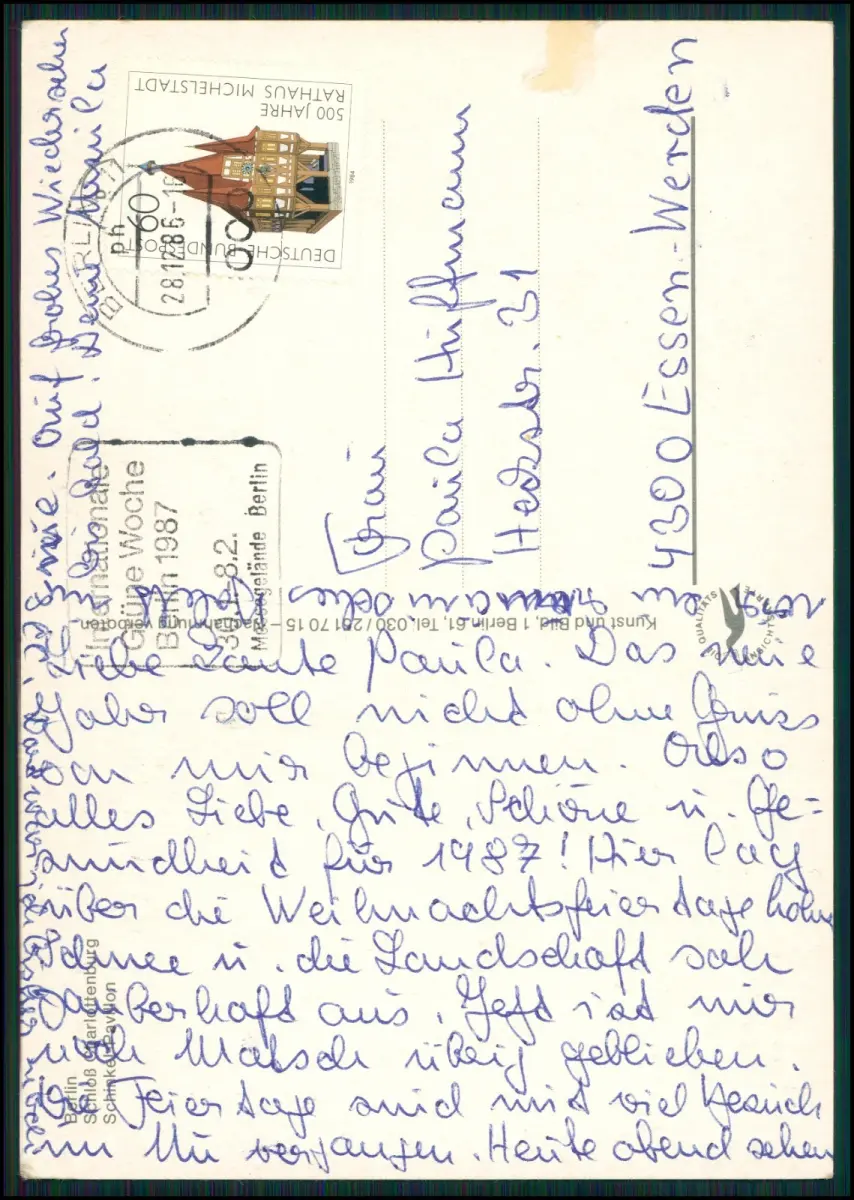 Liebe Tante Paula. Das neue
Jahr soll nicht ohne Gruss
von mir beginnen. Also
alles Liebe, Gute, Schöne u. Ge=
sundheit für 1987! Hier lag
über die Weihnachtsfeiertage hoher
Schnee u. die Landschaft sah
zauberhaft aus. Jetzt ist nur
noch Matsch übrig geblieben.
Die Feiertage sind mit viel Besuch
im Nu vergangen. Heute abend sehen
Auf frohes Wiedersehen
bis bald! Deine
Frau
Paula Hüffmann
Heckstr. 31
4300 Essen-Werden
500 JAHRE
RATHAUS MICHELSTADT
DEUTSCHE BUNDESPOST
60
1984
BERLIN 11
ph
28.12.86-16
000
Internationale
Grüne Woche
Berlin 1987
30.1.-8.2.
Messegelände Berlin
Kunst und Bild, 1 Berlin 61, Tel. 030/251 70 15 – Nachahmung verboten
QUALITÄTS
Berlin
Schloß Charlottenburg
Schinkel-Pavillon